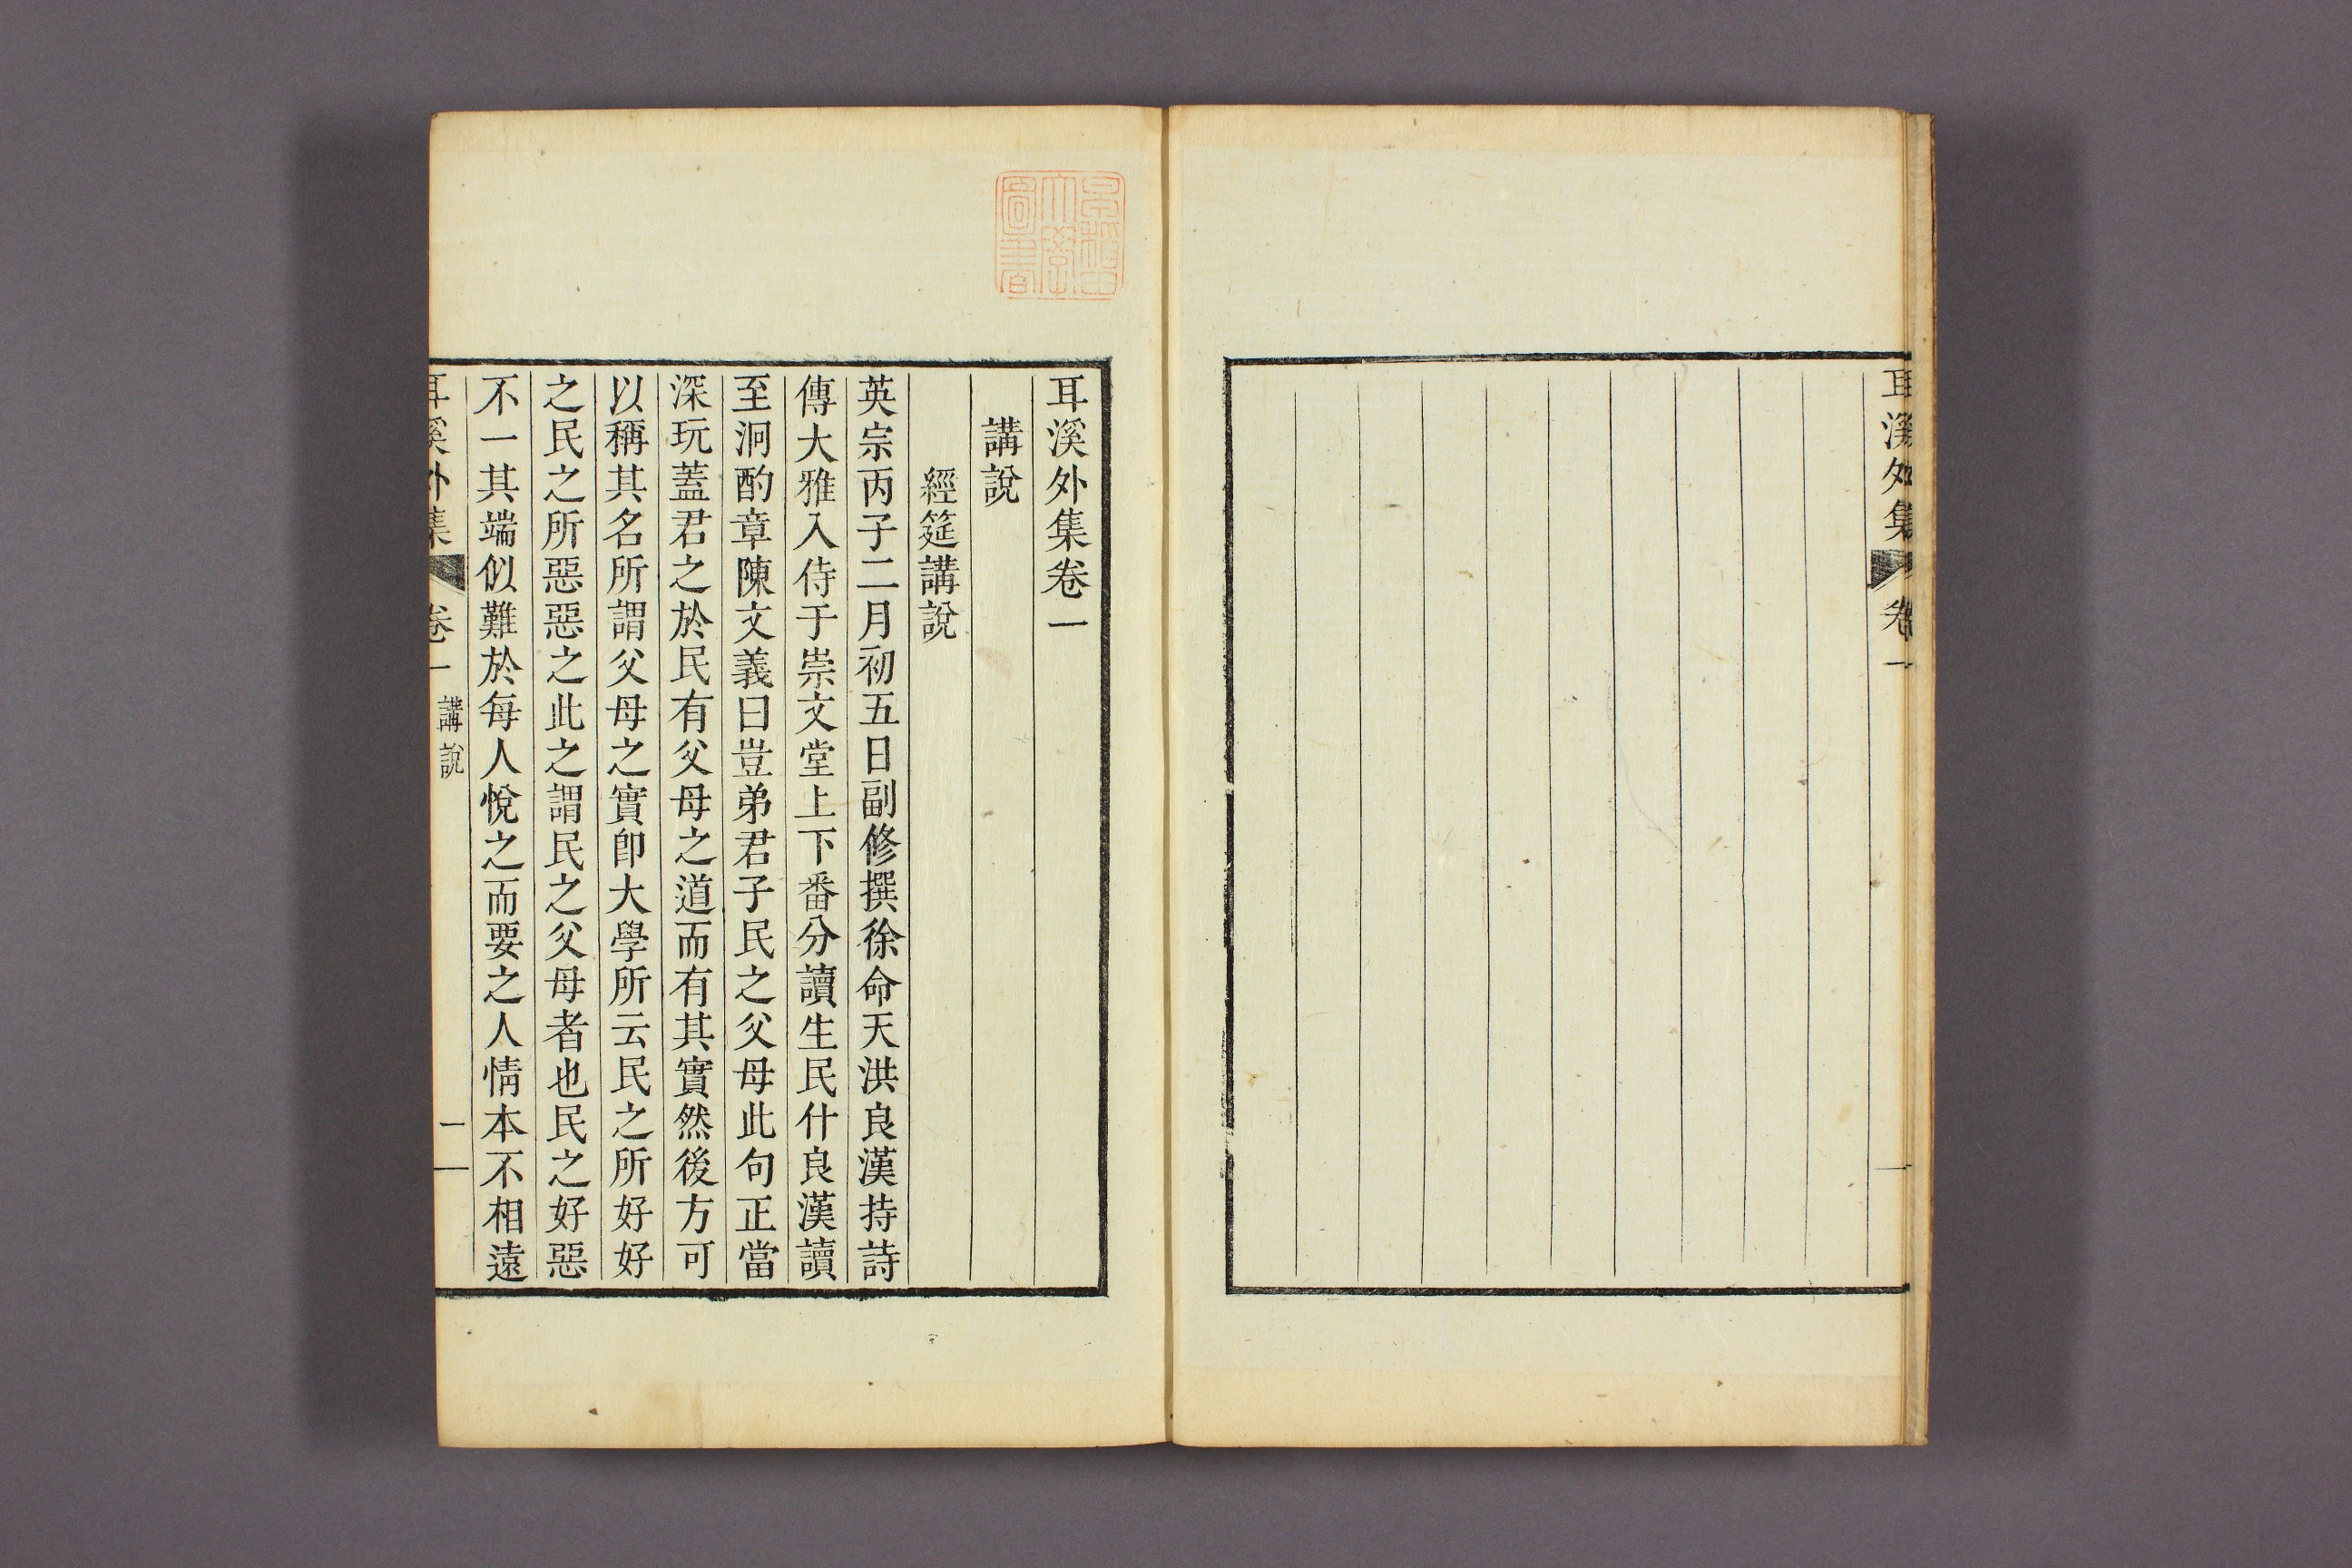 耳溪外集
卷一
耳溪外集卷一
講說
經筵講說
英宗丙子二月初五日副修撰徐命天洪良漢持詩
傳大雅入侍于崇文堂上下番分讀生民什良漢讀
至泂酌章陳文義曰豈弟君子民之父母此句正當
深玩蓋君之於民有父母之道而有其實然後方可
以稱其名所謂父母之實卽大學所云民之所好好
之民之所惡惡之此之謂民之父母者也民之好惡
不一其端似難於每人悅之而要之人情本不相遠
耳溪外集
卷一
講說
一